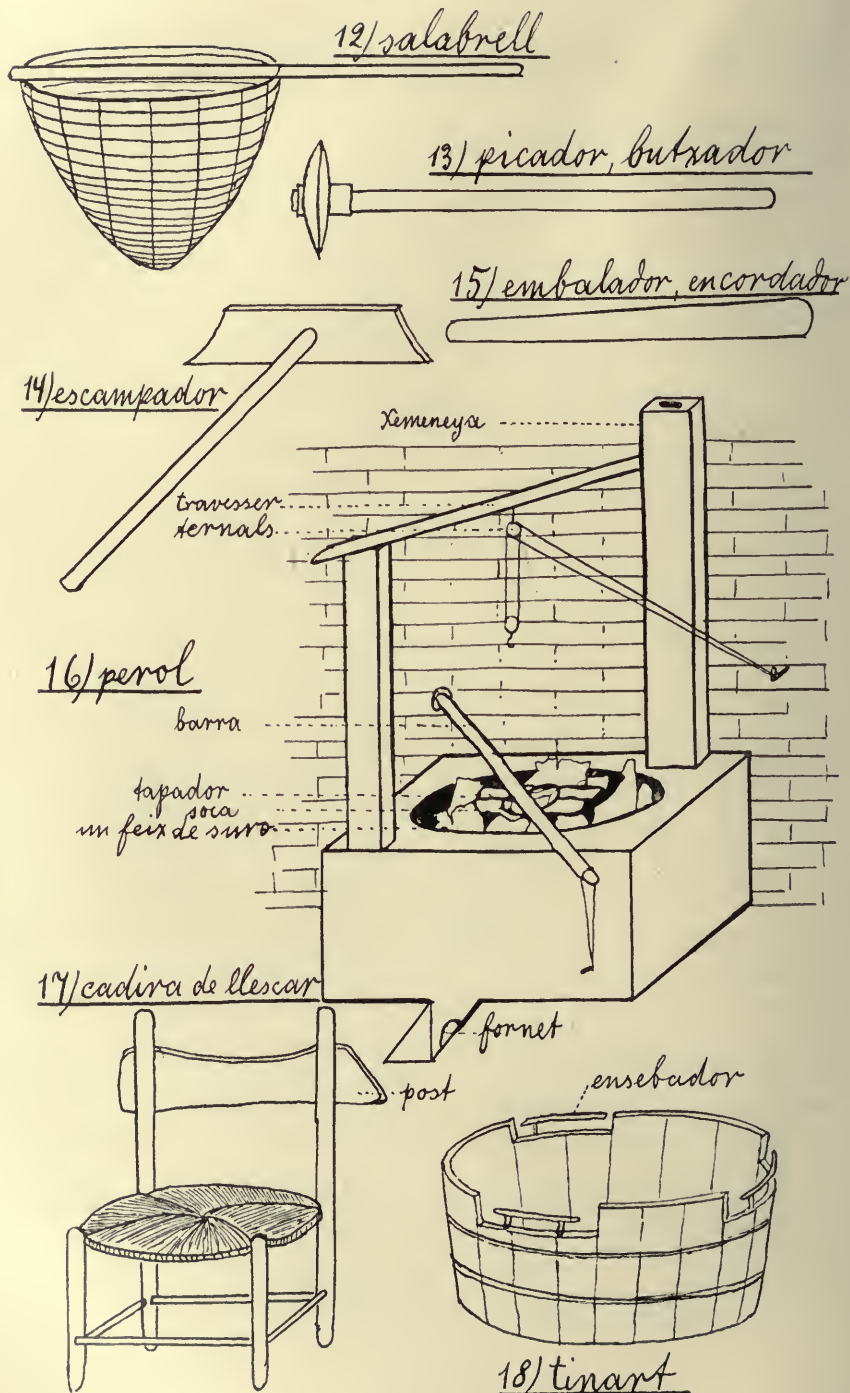 12/ salabrell
13/ picador, butxador
15/ embalador, encordador
14/ escampador
Xemeneya
travesser
ternals
16/ perol
barra
tapador
soca
un feix de suro
17/ cadira de llescar
fornet
post
ensebador
18/ tinart